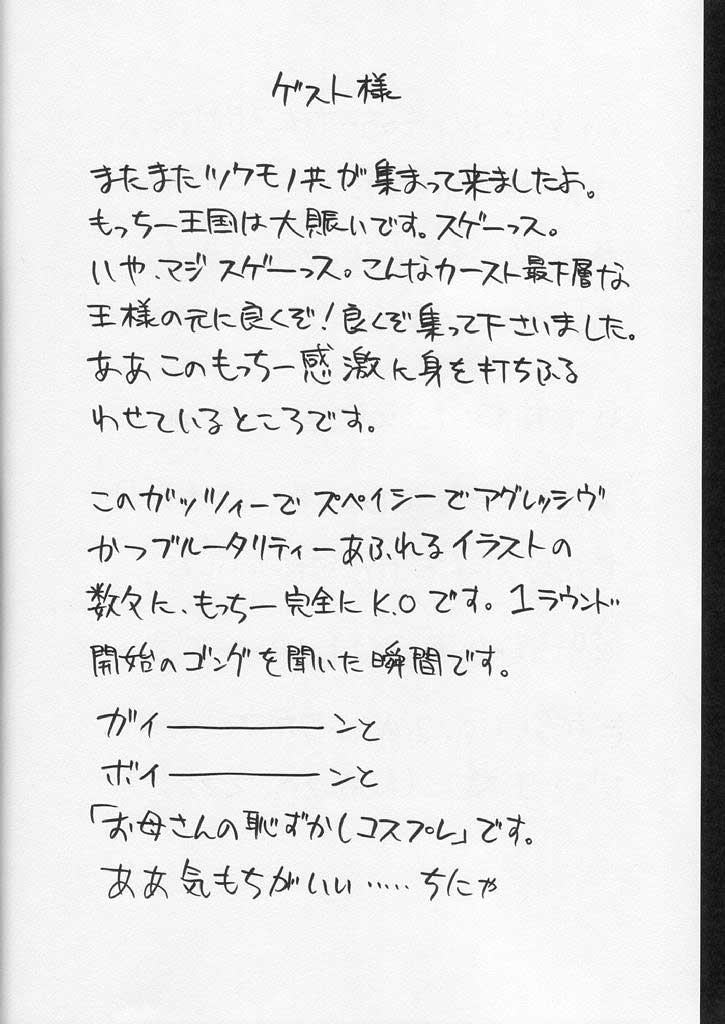 ゲスト様
またまたツワモノ共が集まって来ましたよ。
もっちー王国は大賑いです。スゲーっス。
いや、マジスゲーっス。こんなカースト最下層な
王様の元に良くぞ!良くぞ集って下さいました。
ああこのもっちー感激に身を打ちふる
わせているところです。
このガッツィーでスペイシーでアグレッシヴ
かつブルータリティーあふれるイラストの
数々に、もっちー完全にK.Oです。1ラウンド
開始のゴングを聞いた瞬間です。
ガイ――――ンと
ボイ――――ンと
「お母さんの恥ずかしコスプレ」です。
ああ気もちがいい……ちにゃ